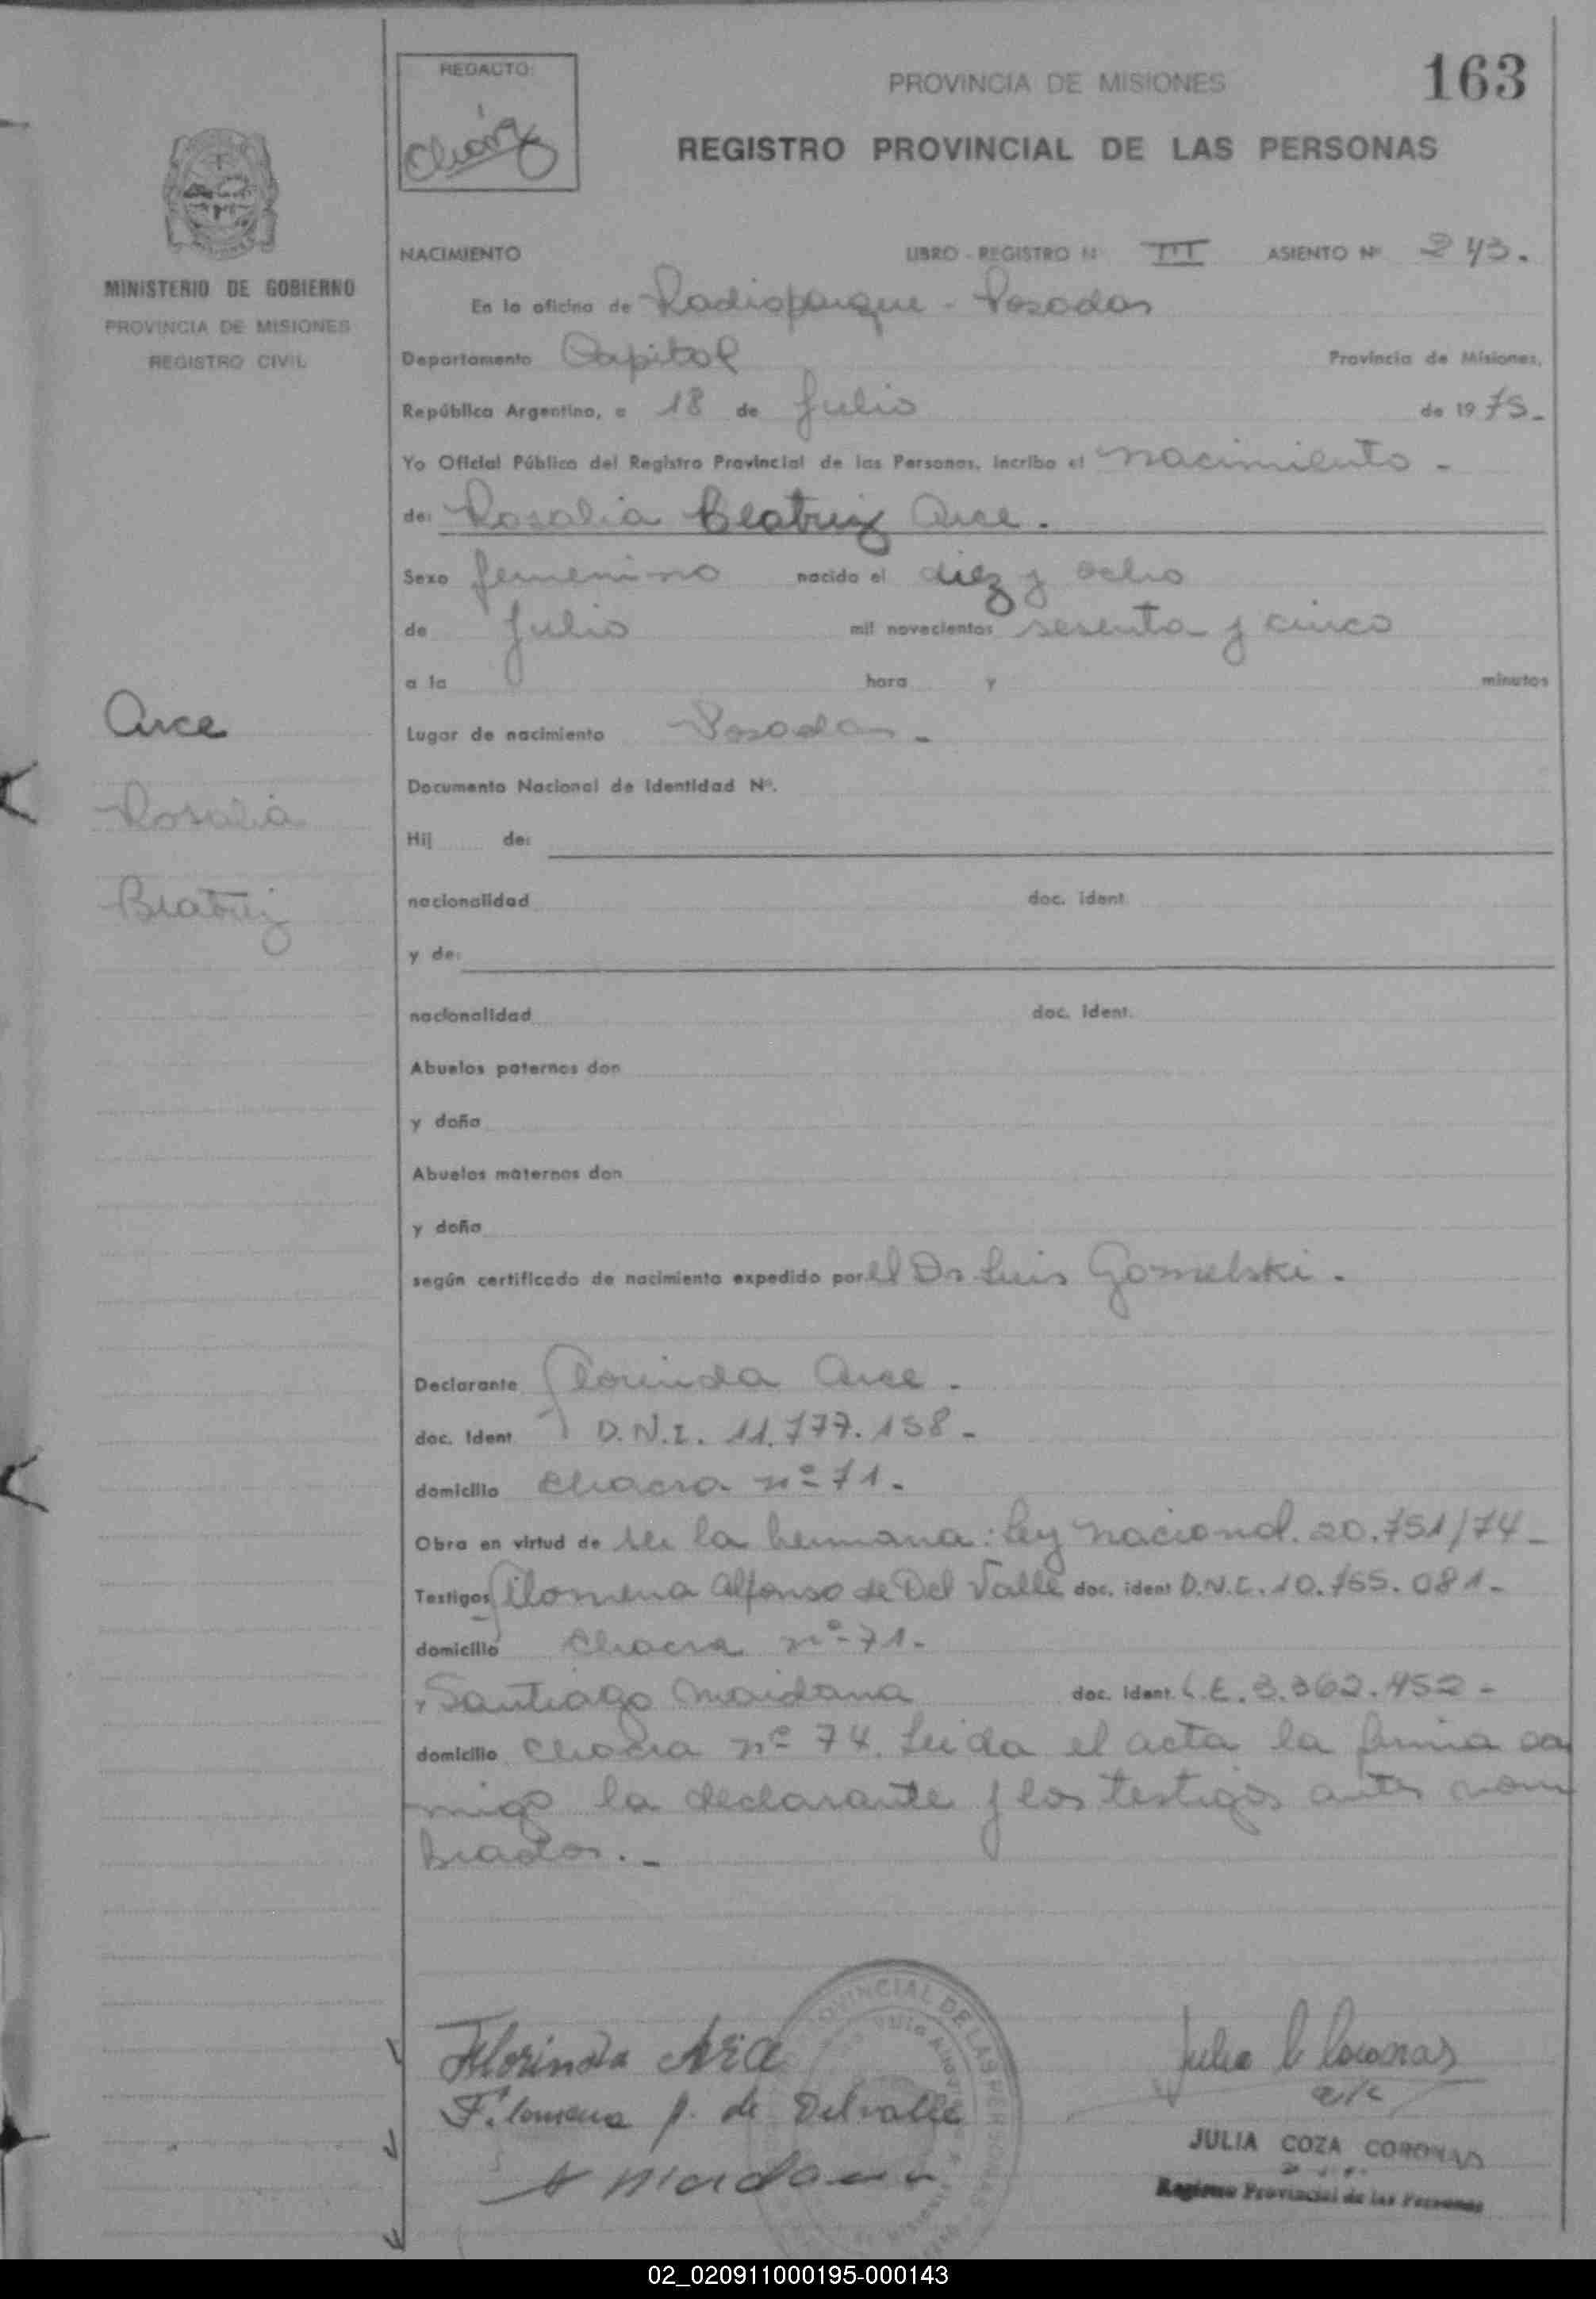 REDACTO:
PROVINCIA DE MISIONES
163
REGISTRO PROVINCIAL DE LAS PERSONAS
MINISTERIO DE GOBIERNO
PROVINCIA DE MISIONES
REGISTRO CIVIL
NACIMIENTO LIBRO - REGISTRO N III ASIENTO Nº 243.
En la oficina de Radioparque - Posadas
Departamento Capital Provincia de Misiones,
República Argentina, a 18 de Julio de 1975.-
Yo Oficial Público del Registro Provincial de las Personas, incribo el nacimiento -
de: Rosalia Beatriz Arce.
Sexo femenino nacido el diez y ocho
de Julio mil novecientos sesenta y cinco
a la hora y minutos
Arce
Rosalia
Beatriz
Lugar de nacimiento Posadas.-
Documento Nacional de Identidad Nº.
Hij de:
nacionalidad doc. ident
y de:
nacionalidad doc. ident.
Abuelos paternos don
y doña
Abuelos maternos don
y doña
según certificado de nacimiento expedido por el Dr Luis Gomelski.
Declarante Florinda Arce.
doc. Ident D.N.I. 11.777.158-
domicilio Chacra nº 71.
Obra en virtud de ser la hermana: Ley nacional. 20.751/74-
Testigos Filomena Alfonso de Del Valle doc. ident D.N.I. 10.765.081-
domicilio Chacra nº 71.
y Santiago Maidana doc. ident. L.E. 3.362.452-
domicilio Chacra nº 74. Leida el acta la firma con
migo la declarante y los testigos antes nom
brados.-
Florinda Arce
Filomena A. de Delvalle
S Maidana
Julia C Coronas
a/c
JULIA COZA CORONAS
Registro Provincial de las Personas
02_020911000195-000143